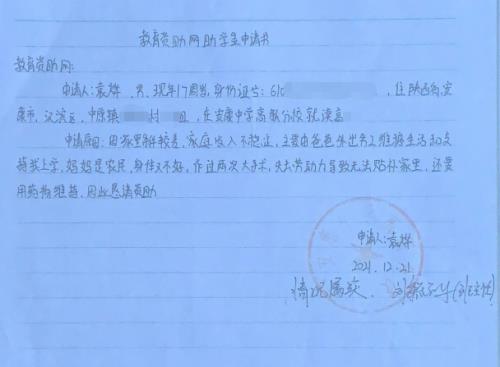 教育资助网助学金申请书
教育资助网:
申请人:袁烨 男,现年17周岁,身份证号:61 ,住陕西省,安
康市,汉滨区,中原镇 村 组,在安康中学高新分校就读高
申请原因:因家里条件较差,家庭收入不稳定,主要由爸爸外出务工维持生活和支
持我上学,妈妈是农民,身体又不好,作过两次大手术,失去劳动力导致无法贴补家里,还要
用药物维持,因此恳请资助
申请人:袁烨
2021.12.21
情况属实. (班主任)